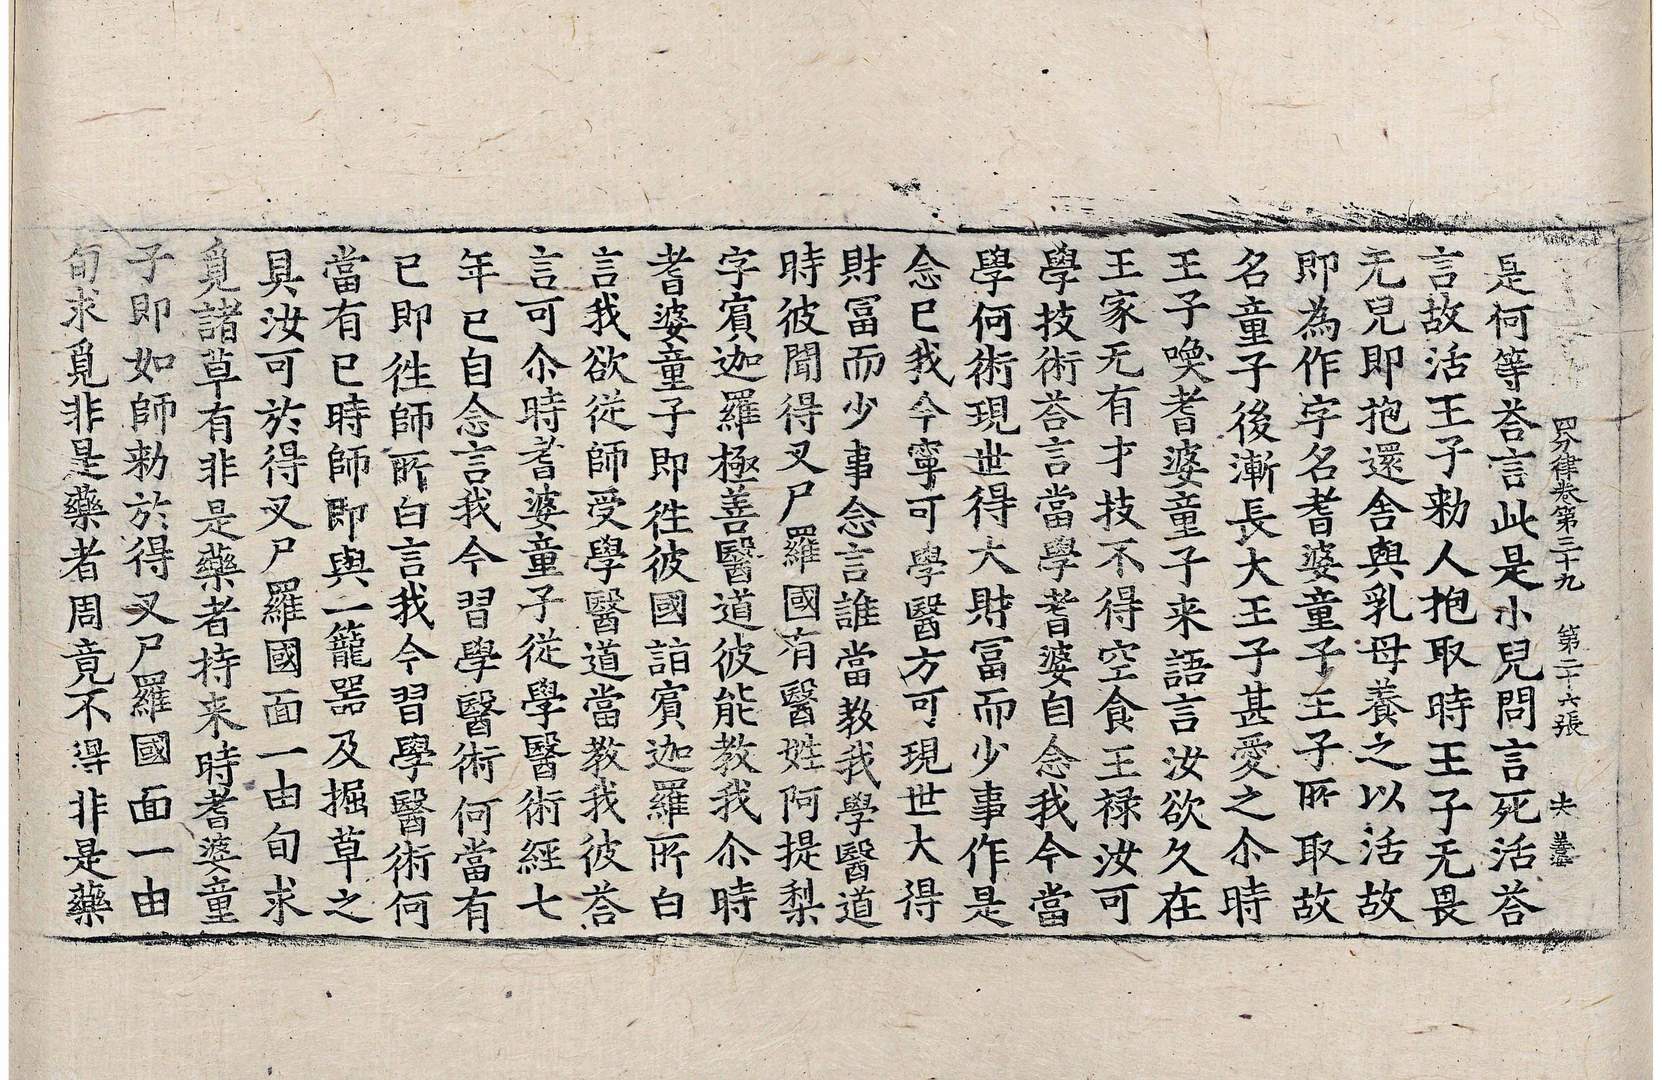 四分律卷第三十九　第二十六張　夫
是何等荅言此是小兒問言死活荅
言故活王子勑人抱取時王子无畏
无兒即抱還舍與乳母養之以活故
即為作字名耆婆童子王子所取故
名童子後漸長大王子甚愛之尒時
王子喚耆婆童子来語言汝欲久在
王家无有才技不得空食王禄汝可
學技術荅言當學耆婆自念我今當
學何術現世得大財冨而少事作是
念已我今寧可學醫方可現世大得
財冨而少事念言誰當教我學醫道
時彼聞得叉尸羅國有醫姓阿提梨
字賔迦羅極善醫道彼能教我尒時
耆婆童子即徃彼國詣賔迦羅所白
言我欲從師受學醫道當教我彼荅
言可尒時耆婆童子從學醫術經七
年已自念言我今習學醫術何當有
已即徃師所白言我今習學醫術何
當有已時師即與一籠器及掘草之
具汝可於得叉尸羅國面一由旬求
覓諸草有非是藥者持来時耆婆童
子即如師勑於得叉尸羅國面一由
旬求覓非是藥者周竟不得非是藥